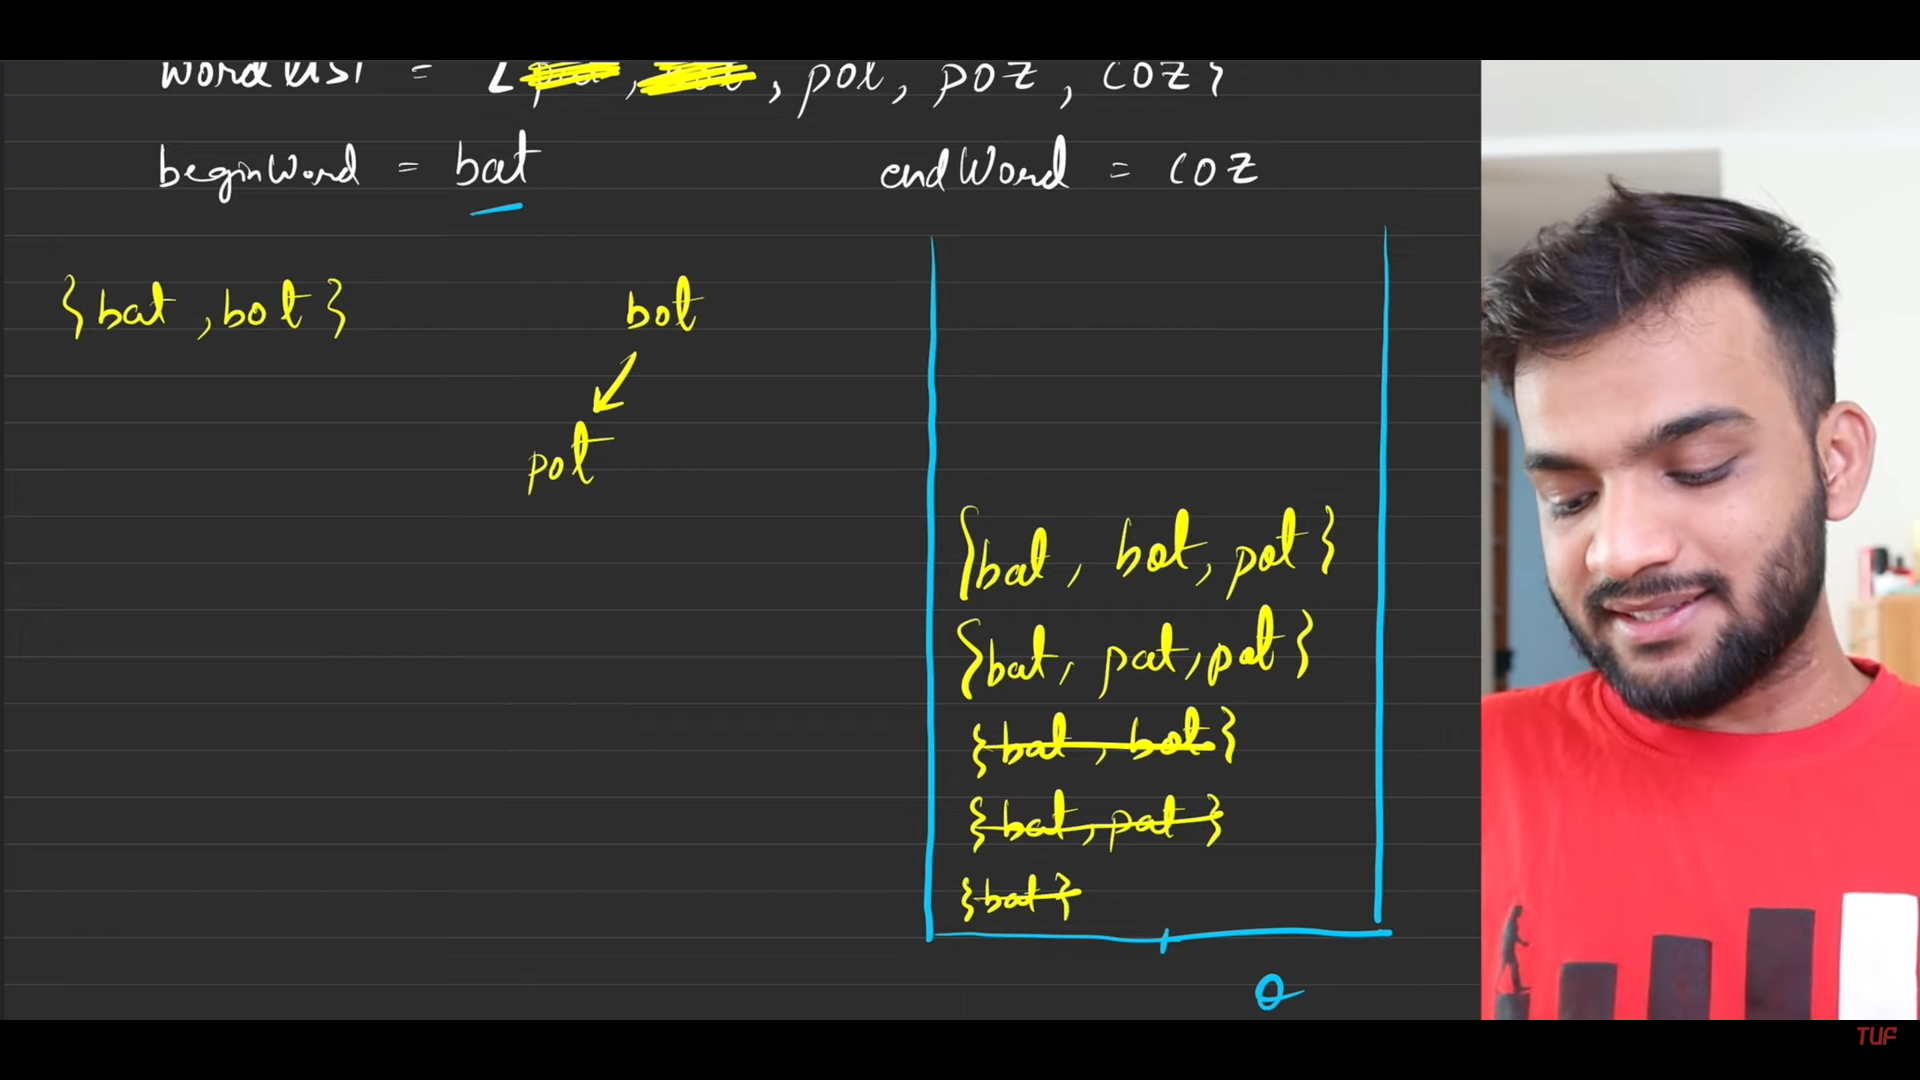 wordList = { , , pot, poz, coz}
beginWord = bat
endWord = coz
{bat, bot}
bot
pot
{bat, bot, pot}
{bat, pat, pot}
{bat, bot}
{bat, pat}
{bat}
Q
TUF